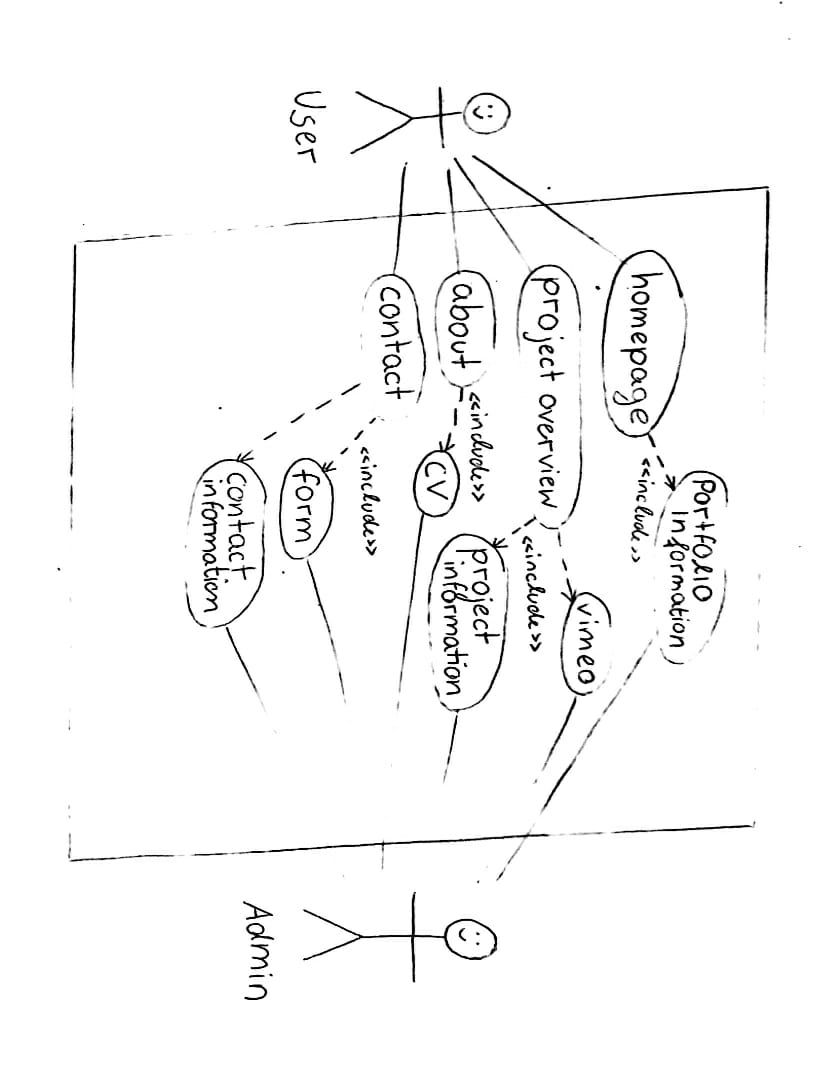 User
homepage
<<include>>
Portfolio
Information
project overview
<<include>>
vimeo
project
information
about
<<include>>
CV
contact
<<include>>
form
contact
information
Admin